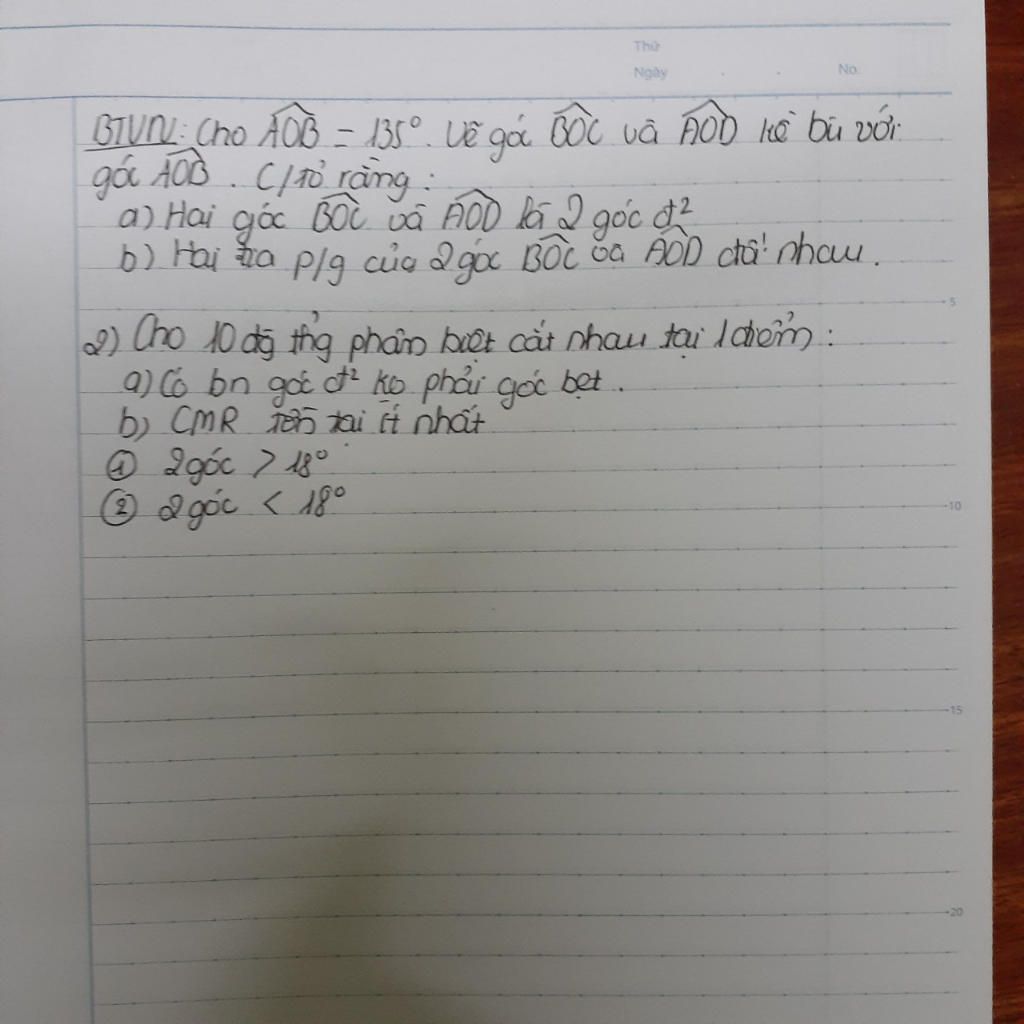 Thứ
Ngày . . No.
BTVN: Cho AÔB = 135°. Vẽ góc BÔC và AÔD kề bù với
góc AÔB. C/tỏ rằng:
a) Hai góc BÔC và AÔD là 2 góc đ²
b) Hai tia p/g của 2 góc BÔC và AÔD đối nhau.
5
2) Cho 10 đg thg phân biệt cắt nhau tại 1 điểm:
a) Có bn góc đ² ko phải góc bẹt.
b) CMR tồn tại ít nhất
① 2 góc > 18°
② 2 góc < 18°
10
15
20